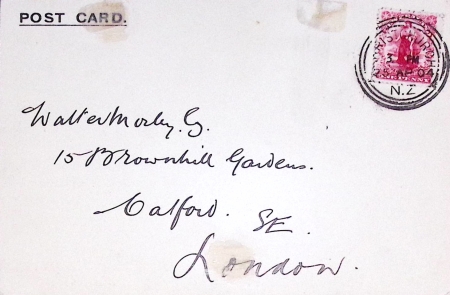 POST CARD.
CHRISTCHURCH
3 PM
25 AP 04
N.Z
Walter Morley. Esq.
15 Brownhill Gardens.
Catford. SE.
London.